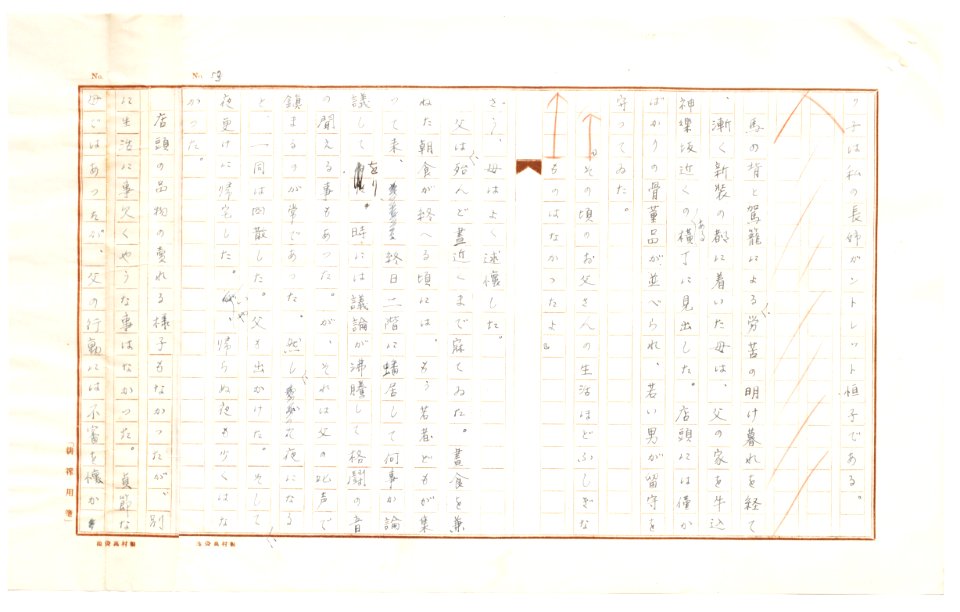 No. 53
リ子は私の長姉がントレット恒子である。
馬の背と駕籠による労苦の明け暮れを経て
、漸く新装の都に着いた母は、父の家を牛込
神楽坂近くのある横丁に見出した。店頭には僅か
ばかりの骨董品が並べられ、若い男が留守を
守ってゐた。
「その頃のお父さんの生活はどふしぎな
ものはなかつたよ。」
さう、母はよく述懐した。
父は殆んど昼近くまで寐てゐた。昼食を兼
ねた朝食が終へる頃には、もう若者どもが集
つて来、終日二階に蟠居して何事か論
議してをり。時には議論が沸騰して格闘の音
の聞える事もあつた。が、それは父の叱声で
鎮まるのが常であつた。然し夜になる
と、一同は四散した。父も出かけた。そして
夜更けに帰宅した。いや、帰らぬ夜も少くはな
かつた。
店頭の品物の売れる様子もなかつたが、別
に生活に事欠くやうな事はなかつた。貞節な
母ではあつたが、父の行動には不審を懐か
No.